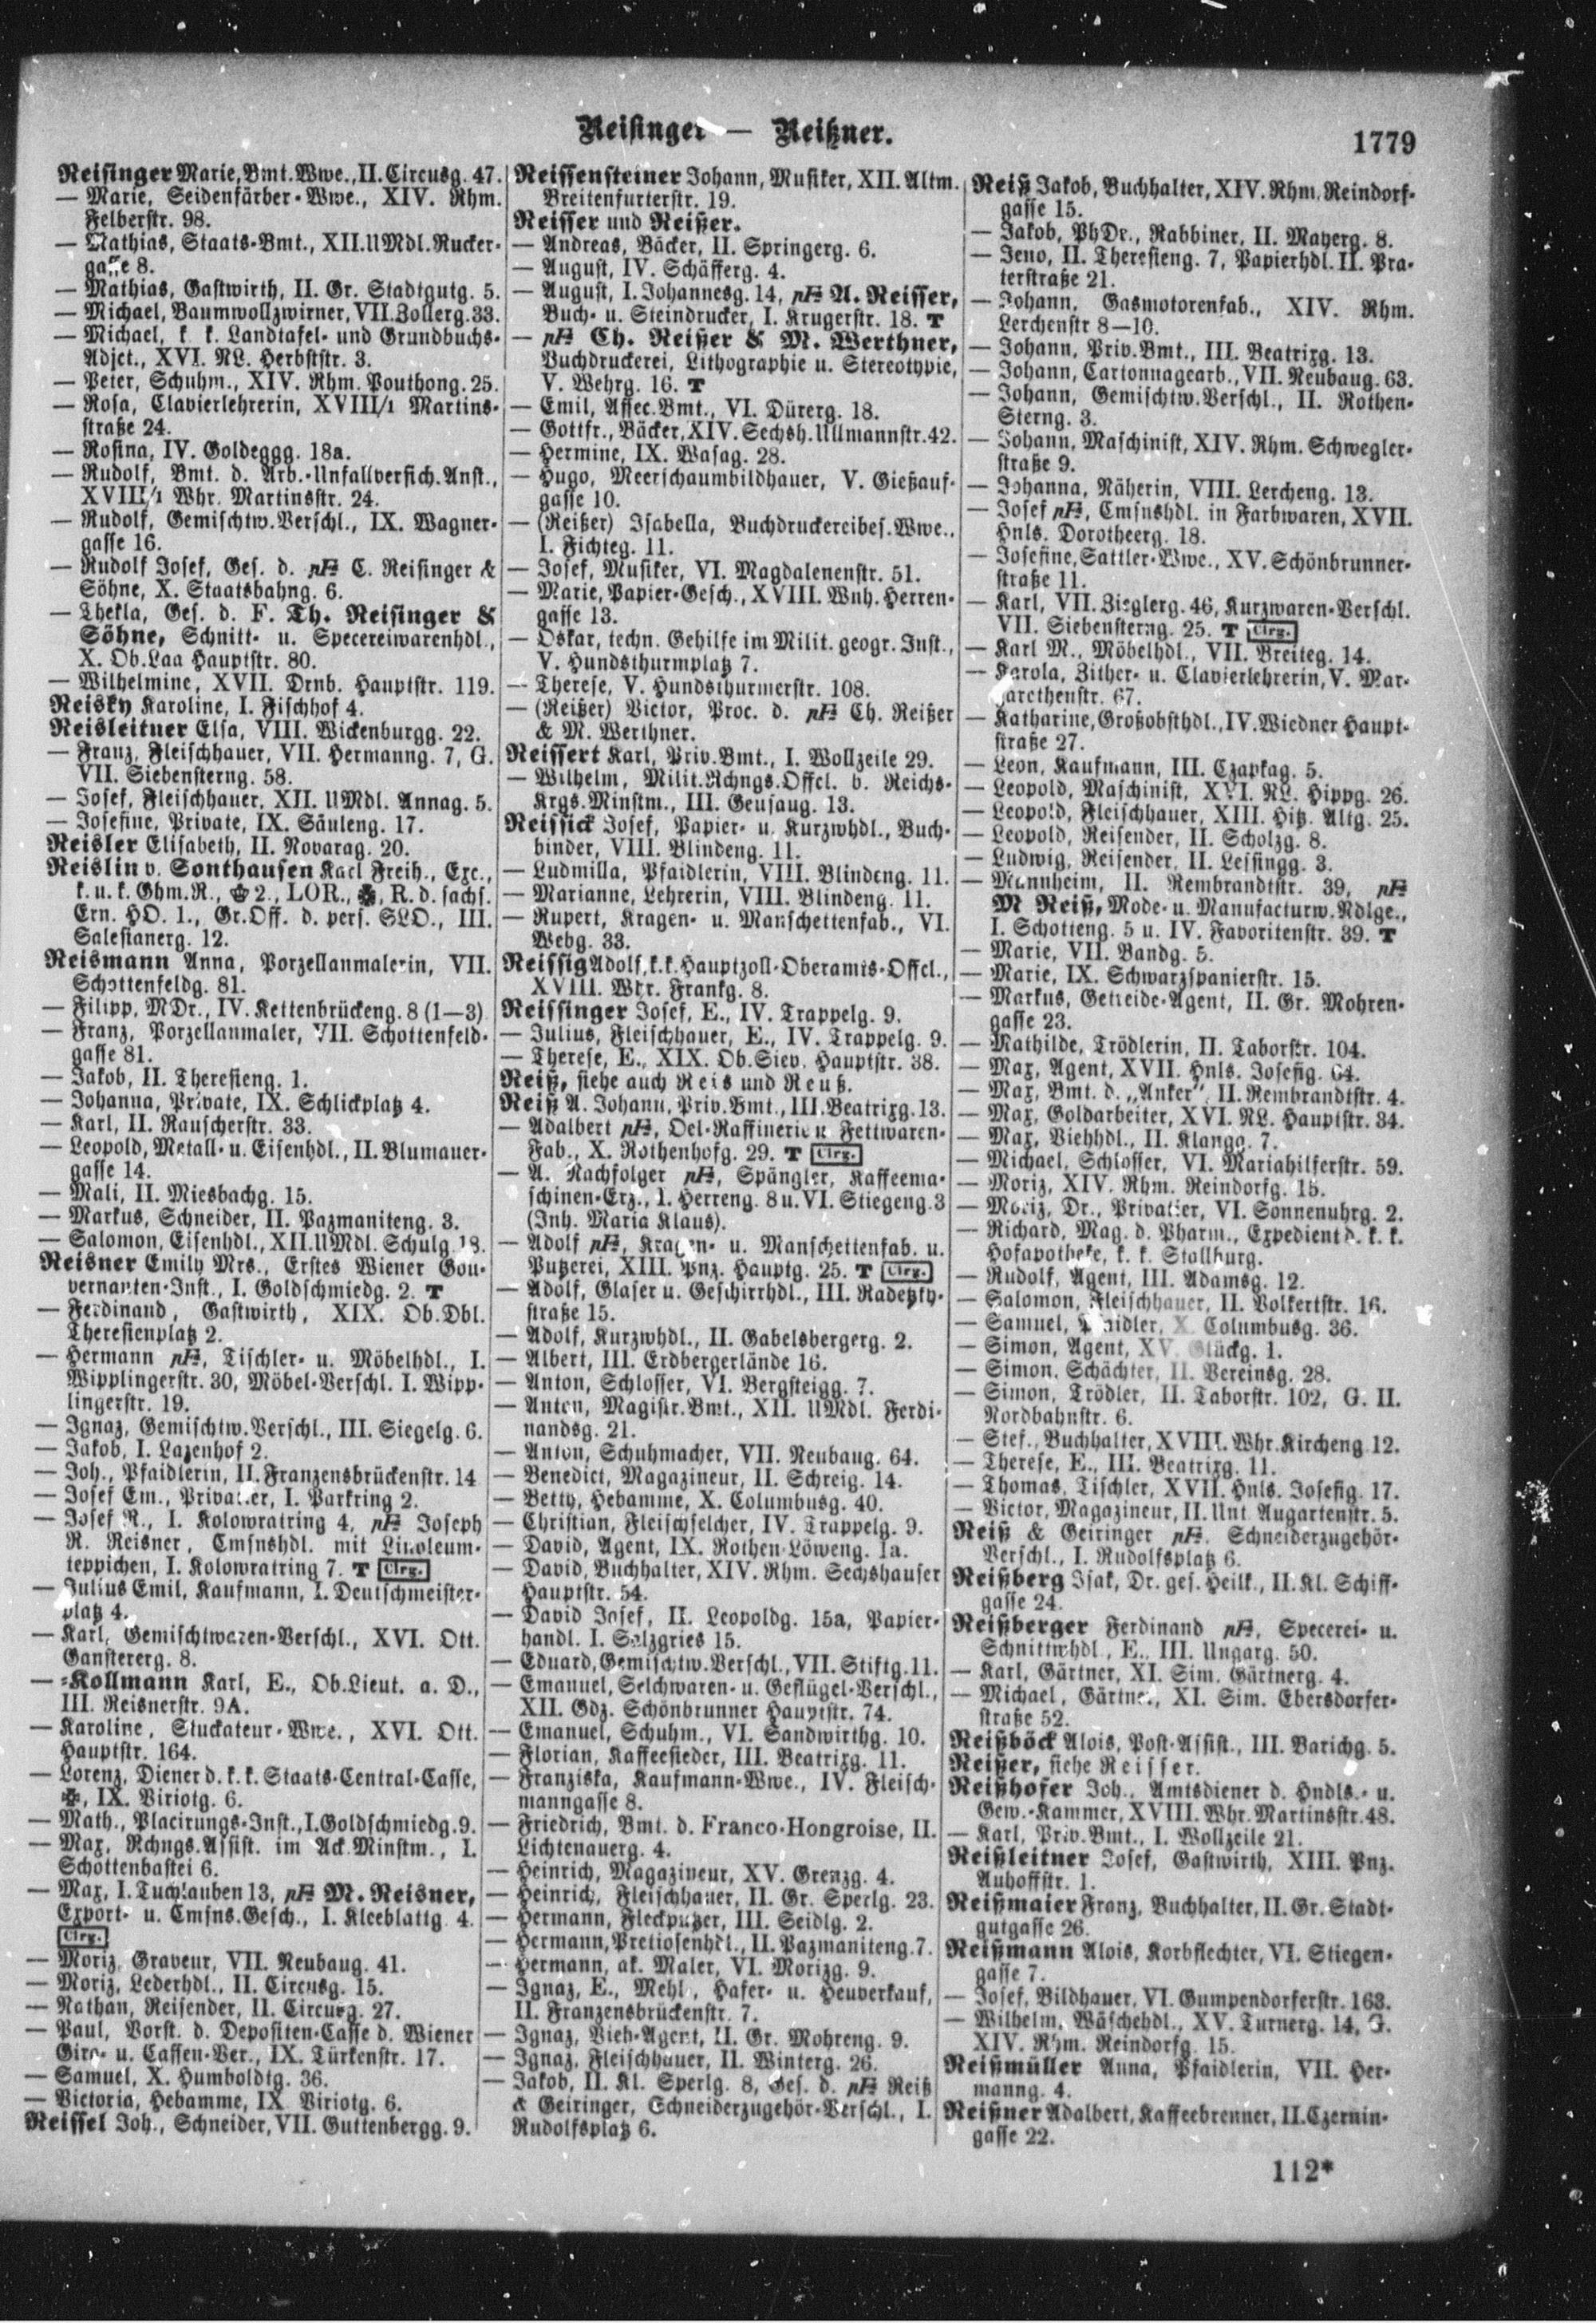 Reisinger — Reißner.
1779
Reisinger Marie, Bmt.Wwe., II. Circusg. 47.
— Marie, Seidenfärber-Wwe., XIV. Rhm.
Felberstr. 98.
— Mathias, Staats-Bmt., XII. UMdl. Rucker-
gasse 8.
— Mathias, Gastwirth, II. Gr. Stadtgutg. 5.
— Michael, Baumwollzwirner, VII. Zollerg. 33.
— Michael, k. k. Landtafel- und Grundbuchs-
Adjct., XVI. NL. Herbststr. 3.
— Peter, Schuhm., XIV. Rhm. Pouthong. 25.
— Rosa, Clavierlehrerin, XVIII/1 Martins-
straße 24.
— Rosina, IV. Goldeggg. 18a.
— Rudolf, Bmt. d. Arb.-Unfallversich.Anst.,
XVIII/1 Whr. Martinsstr. 24.
— Rudolf, Gemischtw.Verschl., IX. Wagner-
gasse 16.
— Rudolf Josef, Ges. d. pF C. Reisinger &
Söhne, X. Staatsbahng. 6.
— Thekla, Ges. d. F. Th. Reisinger &
Söhne, Schnitt- u. Specereiwarenhdl.,
X. Ob.Laa Hauptstr. 80.
— Wilhelmine, XVII. Drnb. Hauptstr. 119.
Reisky Karoline, I. Fischhof 4.
Reisleitner Elsa, VIII. Wickenburgg. 22.
— Franz, Fleischhauer, VII. Hermanng. 7, G.
VII. Siebensterng. 58.
— Josef, Fleischhauer, XII. UMdl. Annag. 5.
— Josefine, Private, IX. Säuleng. 17.
Reisler Elisabeth, II. Novarag. 20.
Reislin v. Sonthausen Karl Freih., Exc.,
k. u. k. Ghm.R., 2., LOR., R. d. sächs.
Ern. HO. 1., Gr.Off. d. pers. SLO., III.
Salesianerg. 12.
Reismann Anna, Porzellanmalerin, VII.
Schottenfeldg. 81.
— Filipp, MDr., IV. Kettenbrückeng. 8 (1—3)
— Franz, Porzellanmaler, VII. Schottenfeld-
gasse 81.
— Jakob, II. Theresieng. 1.
— Johanna, Private, IX. Schlickplatz 4.
— Karl, II. Rauscherstr. 33.
— Leopold, Metall- u. Eisenhdl., II. Blumauer-
gasse 14.
— Mali, II. Miesbachg. 15.
— Markus, Schneider, II. Pazmaniteng. 3.
— Salomon, Eisenhdl., XII. UMdl. Schulg. 18.
Reisner Emily Mrs., Erstes Wiener Gou-
vernanten-Inst., I. Goldschmiedg. 2. T
— Ferdinand, Gastwirth, XIX. Ob.Dbl.
Theresienplatz 2.
— Hermann pF, Tischler- u. Möbelhdl., I.
Wipplingerstr. 30, Möbel-Verschl. I. Wipp-
lingerstr. 19.
— Ignaz, Gemischtw.Verschl., III. Siegelg. 6.
— Jakob, I. Lazenhof 2.
— Joh., Pfaidlerin, II. Franzensbrückenstr. 14
— Josef Em., Privatier, I. Parkring 2.
— Josef R., I. Kolowratring 4, pF Joseph
R. Reisner, Cmsnshdl. mit Linoleum-
teppichen, I. Kolowratring 7. T Clrg.
— Julius Emil, Kaufmann, I. Deutschmeister-
platz 4.
— Karl, Gemischtwaren-Verschl., XVI. Ott.
Gansterergo. 8.
— -Kollmann Karl, E., Ob.Lieut. a. D.,
III. Reisnerstr. 9A.
— Karoline, Stuckateur-Wwe., XVI. Ott.
Hauptstr. 164.
— Lorenz, Diener d. k. k. Staats-Central-Casse,
, IX. Viriotg. 6.
— Math., Placirungs-Inst., I. Goldschmiedg. 9.
— Max, Rchngs.Assist. im Ack.Minstm., I.
Schottenbastei 6.
— Max, I. Tuchlauben 13, pF M. Reisner,
Export- u. Cmsns.Gesch., I. Kleeblattg. 4.
Clrg.
— Moriz, Graveur, VII. Neubaug. 41.
— Moriz, Lederhdl., II. Circusg. 15.
— Nathan, Reisender, II. Circusg. 27.
— Paul, Vorst. d. Depositen-Casse d. Wiener
Giro- u. Cassen-Ver., IX. Türkenstr. 17.
— Samuel, X. Humboldtg. 36.
— Victoria, Hebamme, IX Viriotg. 6.
Reissel Joh., Schneider, VII. Guttenbergg. 9.
Reissensteiner Johann, Musiker, XII. Altm.
Breitenfurterstr. 19.
Reisser und Reißer.
— Andreas, Bäcker, II. Springerg. 6.
— August, IV. Schäfferg. 4.
— August, I. Johannesg. 14, pF A. Reisser,
Buch- u. Steindrucker, I. Krugerstr. 18. T
— pF Ch. Reißer & M. Werthner,
Buchdruckerei, Lithographie u. Stereotypie,
V. Wehrg. 16. T
— Emil, Assec.Bmt., VI. Dürerg. 18.
— Gottfr., Bäcker, XIV. Sechsh. Ullmannstr. 42.
— Hermine, IX. Wasag. 28.
— Hugo, Meerschaumbildhauer, V. Gießauf-
gasse 10.
— (Reißer) Isabella, Buchdruckereibes.Wwe.,
I. Fichteg. 11.
— Josef, Musiker, VI. Magdalenenstr. 51.
— Marie, Papier-Gesch., XVIII. Wnh. Herren-
gasse 13.
— Oskar, techn. Gehilfe im Milit. geogr. Inst.,
V. Hundsthurmplatz 7.
— Therese, V. Hundsthurmerstr. 108.
— (Reißer) Victor, Proc. d. pF Ch. Reißer
& M. Werthner.
Reissert Karl, Priv.Bmt., I. Wollzeile 29.
— Wilhelm, Milit.Rchngs.Offcl. b. Reichs-
Krgs.Minstm., III. Geusaug. 13.
Reissick Josef, Papier- u. Kurzwhdl., Buch-
binder, VIII. Blindeng. 11.
— Ludmilla, Pfaidlerin, VIII. Blindeng. 11.
— Marianne, Lehrerin, VIII. Blindeng. 11.
— Rupert, Kragen- u. Manschettenfab., VI.
Webg. 33.
Reissig Adolf, k. k. Hauptzoll-Oberamts-Offcl.,
XVIII. Whr. Frankg. 8.
Reissinger Josef, E., IV. Trappelg. 9.
— Julius, Fleischhauer, E., IV. Trappelg. 9.
— Therese, E., XIX. Ob.Siev. Hauptstr. 38.
Reiß, siehe auch Reis und Reuß.
Reiß A. Johann, Priv.Bmt., III. Beatrixg. 13.
— Adalbert pF, Oel-Raffinerie u. Fettwaren-
Fab., X. Rothenhofg. 29. T Clrg.
— A. Nachfolger pF, Spängler, Kaffeema-
schinen-Erz., I. Herreng. 8 u. VI. Stiegeng. 3
(Inh. Maria Klaus).
— Adolf pF, Kragen- u. Manschettenfab. u.
Putzerei, XIII. Pnz. Hauptg. 25. T Clrg.
— Adolf, Glaser u. Geschirrhdl., III. Radetzky-
straße 15.
— Adolf, Kurzwhdl., II. Gabelsbergerg. 2.
— Albert, III. Erdbergerlände 16.
— Anton, Schlosser, VI. Bergsteigg. 7.
— Anton, Magistr.Bmt., XII. UMdl. Ferdi-
nandsg. 21.
— Anton, Schuhmacher, VII. Neubaug. 64.
— Benedict, Magazineur, II. Schreig. 14.
— Betty, Hebamme, X. Columbusg. 40.
— Christian, Fleischselcher, IV. Trappelg. 9.
— David, Agent, IX. Rothen-Löweng. 1a.
— David, Buchhalter, XIV. Rhm. Sechshauser
Hauptstr. 54.
— David Josef, II. Leopoldg. 15a, Papier-
handl. I. Salzgries 15.
— Eduard, Gemischtw.Verschl., VII. Stiftg. 11.
— Emanuel, Selchwaren- u. Geflügel-Verschl.,
XII. Gdz. Schönbrunner Hauptstr. 74.
— Emanuel, Schuhm., VI. Sandwirthg. 10.
— Florian, Kaffeesieder, III. Beatrixg. 11.
— Franziska, Kaufmann-Wwe., IV. Fleisch-
manngasse 8.
— Friedrich, Bmt. d. Franco-Hongroise, II.
Lichtenauerg. 4.
— Heinrich, Magazineur, XV. Grenzg. 4.
— Heinrich, Fleischhauer, II. Gr. Sperlg. 23.
— Hermann, Fleckputzer, III. Seidlg. 2.
— Hermann, Pretiosenhdl., II. Pazmaniteng. 7.
— Hermann, ak. Maler, VI. Morizg. 9.
— Ignaz, E., Mehl-, Hafer- u. Heuverkauf,
II. Franzensbrückenstr. 7.
— Ignaz, Vieh-Agent, II. Gr. Mohreng. 9.
— Ignaz, Fleischhauer, II. Winterg. 26.
— Jakob, II. Kl. Sperlg. 8, Ges. d. pF Reiß
& Geiringer, Schneiderzugehör-Verschl., I.
Rudolfsplatz 6.
Reiß Jakob, Buchhalter, XIV. Rhm. Reindorf-
gasse 15.
— Jakob, PhDr., Rabbiner, II. Mayerg. 8.
— Jeno, II. Theresieng. 7, Papierhdl. II. Pra-
terstraße 21.
— Johann, Gasmotorenfab., XIV. Rhm.
Lerchenstr 8—10.
— Johann, Priv.Bmt., III. Beatrixg. 13.
— Johann, Cartonnagearb., VII. Neubaug. 63.
— Johann, Gemischtw.Verschl., II. Rothen-
Sterng. 3.
— Johann, Maschinist, XIV. Rhm. Schwegler-
straße 9.
— Johanna, Näherin, VIII. Lercheng. 13.
— Josef pF, Cmsnshdl. in Farbwaren, XVII.
Hnls. Dorotheerg. 18.
— Josefine, Sattler-Wwe., XV. Schönbrunner-
straße 11.
— Karl, VII. Zieglerg. 46, Kurzwaren-Verschl.
VII. Siebensterng. 25. T Clrg.
— Karl M., Möbelhdl., VII. Breiteg. 14.
— Karola, Zither- u. Clavierlehrerin, V. Mar-
garethenstr. 67.
— Katharine, Großobsthdl., IV. Wiedner Haupt-
straße 27.
— Leon, Kaufmann, III. Czapkag. 5.
— Leopold, Maschinist, XVI. NL. Hippg. 26.
— Leopold, Fleischhauer, XIII. Hitz. Altg. 25.
— Leopold, Reisender, II. Scholzg. 8.
— Ludwig, Reisender, II. Lessingg. 3.
— Mannheim, II. Rembrandtstr. 39, pF
M Reiß, Mode- u. Manufacturw.Ndlge.,
I. Schotteng. 5 u. IV. Favoritenstr. 39. T
— Marie, VII. Bandg. 5.
— Marie, IX. Schwarzspanierstr. 15.
— Markus, Getreide-Agent, II. Gr. Mohren-
gasse 23.
— Mathilde, Trödlerin, II. Taborstr. 104.
— Max, Agent, XVII. Hnls. Josefig. 64.
— Max, Bmt. d. „Anker", II. Rembrandtstr. 4.
— Max, Goldarbeiter, XVI. NL. Hauptstr. 34.
— Max, Viehhdl., II. Klangg. 7.
— Michael, Schlosser, VI. Mariahilferstr. 59.
— Moriz, XIV. Rhm. Reindorfg. 15.
— Moriz, Dr., Privatier, VI. Sonnenuhrg. 2.
— Richard, Mag. d. Pharm., Expedient d. k. k.
Hofapotheke, k. k. Stallburg.
— Rudolf, Agent, III. Adamsg. 12.
— Salomon, Fleischhauer, II. Volkertstr. 16.
— Samuel, Pfaidler, X. Columbusg. 36.
— Simon, Agent, XV. Glückg. 1.
— Simon, Schächter, II. Vereinsg. 28.
— Simon, Trödler, II. Taborstr. 102, G. II.
Nordbahnstr. 6.
— Stef., Buchhalter, XVIII. Whr. Kircheng 12.
— Therese, E., III. Beatrixg. 11.
— Thomas, Tischler, XVII. Hnls. Josefig. 17.
— Victor, Magazineur, II. Unt. Augartenstr. 5.
Reiß & Geiringer pF, Schneiderzugehör-
Verschl., I. Rudolfsplatz 6.
Reißberg Isak, Dr. ges. Heilk., II. Kl. Schiff-
gasse 24.
Reißberger Ferdinand pF, Specerei- u.
Schnittwhdl., E., III. Ungarg. 50.
— Karl, Gärtner, XI. Sim. Gärtnerg. 4.
— Michael, Gärtner, XI. Sim. Ebersdorfer-
straße 52.
Reißböck Alois, Post-Assist., III. Barichg. 5.
Reißer, siehe Reisser.
Reißhofer Joh., Amtsdiener d. Hndls.- u.
Gew.-Kammer, XVIII. Whr. Martinsstr. 48.
— Karl, Priv.Bmt., I. Wollzeile 21.
Reißleitner Josef, Gastwirth, XIII. Pnz.
Auhoffstr. 1.
Reißmaier Franz, Buchhalter, II. Gr. Stadt-
gutgasse 26.
Reißmann Alois, Korbflechter, VI. Stiegen-
gasse 7.
— Josef, Bildhauer, VI. Gumpendorferstr. 163.
— Wilhelm, Wäschehdl., XV. Turnerg. 14, G.
XIV. Rhm. Reindorfg. 15.
Reißmüller Anna, Pfaidlerin, VII. Her-
manng. 4.
Reißner Adalbert, Kaffeebrenner, II. Czernin-
gasse 22.
112*